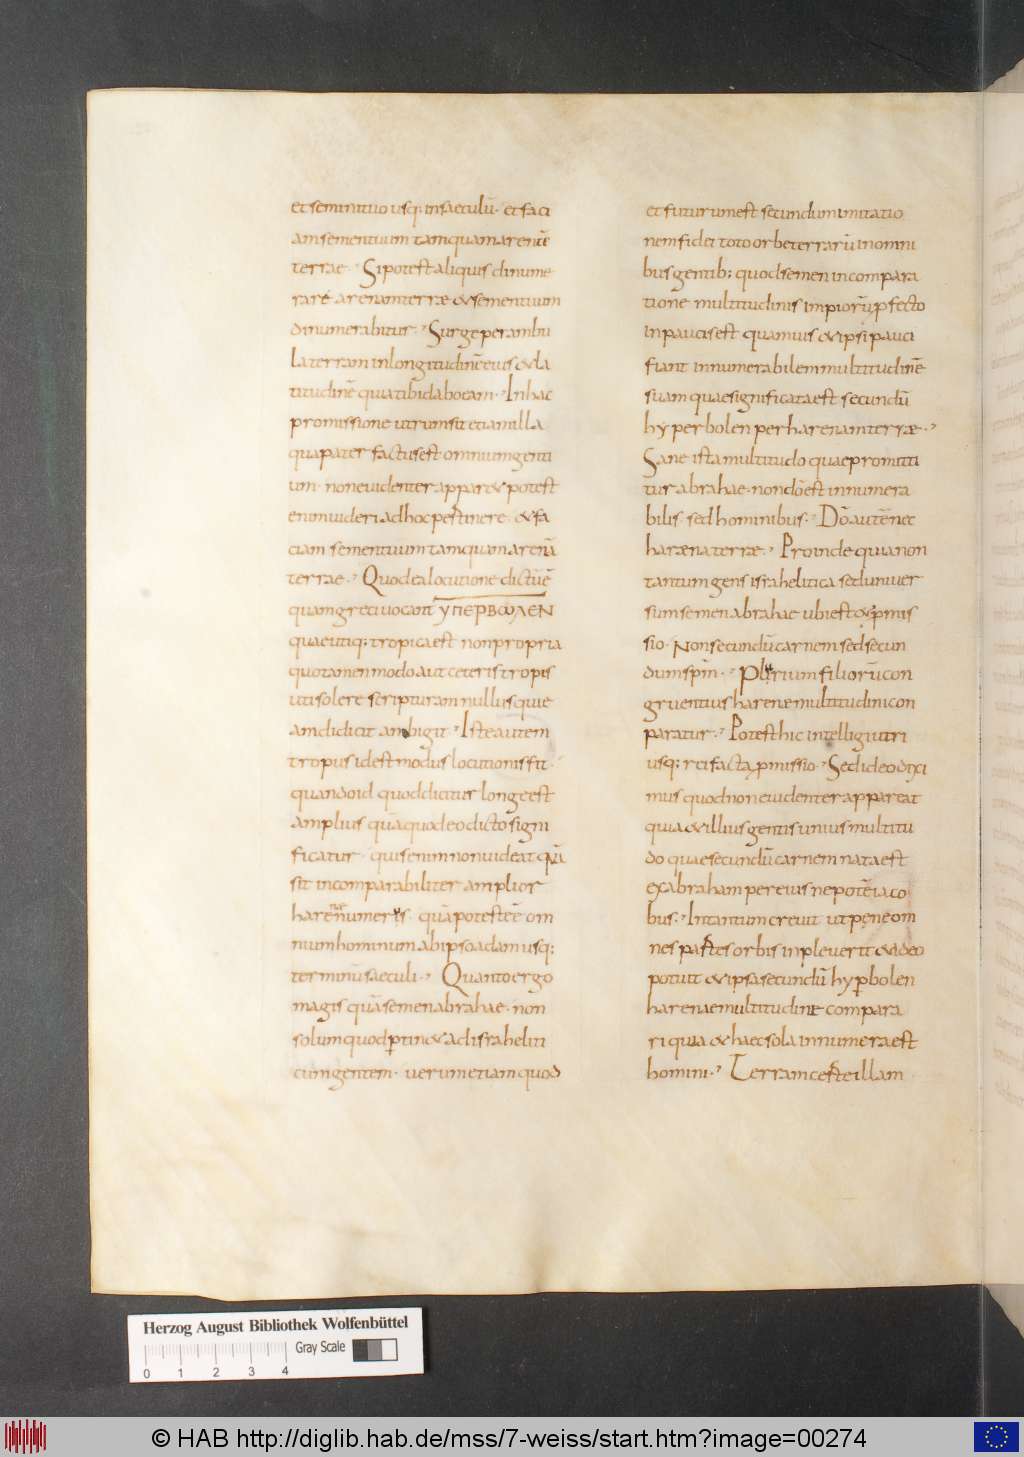 et semini tuo usq; insaeculū· et faci
am semen tuum tamquam arenā
terrae· Si potest aliquis dinume
rare arenam terræ & semen tuum
dinumerabitur· Surge perambu
la terram inlongitudinē eius & la
titudinē quia tibi dabo eam· In hac
promissione utrum sit etiam illa
qua pater factus est omnium genti
um· non euidenter appar& potest
enim uideri ad hoc pertinere· & fa
ciam semen tuum tamquam arenā
terrae· Quod ea locutione dictū ē
quam greci uocant ΥΠΕΡΒΟΛΕΝ
quae utiq; tropica est non propria
quo tamen modo aut ceteris tropis
uti solere scripturam nullus qui e
am didicit ambigit· Iste autem
tropus id est modus locutionis fit·
quando id quod dicitur longe est
amplius quā quod eo dicto signi
ficatur· quis enim non uideat quā
sit incomparabiliter amplior
harenae numerus quā potest eē om
nium hominum ab ipso adam usq;
terminū saeculi· Quanto ergo
magis quā semen abrahae· non
solum quod ptin& ad israheliti
cum gentem· uerum etiam quod
et futurum est secundum imitatio
nem fidei toto orbe terrarū in omni
bus gentib; quod semen in compara
tione multitudinis impiorū pfecto
in paucis est quamuis & ipsi pauci
fiant innumerabilem multitudinē
suam quae significata est secundū
hyperbolen per harenam terræ·
Sane ista multitudo quae promitti
tur abrahae· non dō est innumera
bilis· sed hominibus· Dō autē nec
haræna terræ· Proinde quia non
tantum gens israhelitica sed uniuer
sum semen abrahae ubi est & pmis
sio· Non secundū carnem sed secun
dum spm̄· Plurium filiorū con
gruentius harenae multitudini con
paratur· Potest hic intelligi utri
usq; rei facta pmissio· Sed ideo dixi
mus quod non euidenter appareat
quia & illius gentis unius multitu
do quae secundū carnem nata est
ex abraham per eius nepotē iaco
bus· In tantum creuit ut pene om
nes partes orbis inpleuerit & ideo
potuit & ipsa secundū hyperbolen
harenae multitudine compara
ri quia & haec sola innumera est
homini· Terram certe illam
Herzog August Bibliothek Wolfenbüttel
Gray Scale
0 1 2 3 4
© HAB http://diglib.hab.de/mss/7-weiss/start.htm?image=00274